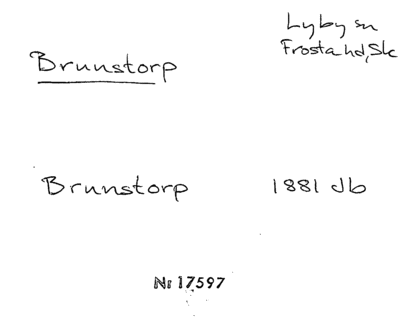 Lyby sn
Frosta hd, Sk
Brunstorp
Brunstorp 1881 Jb
Nr 17597